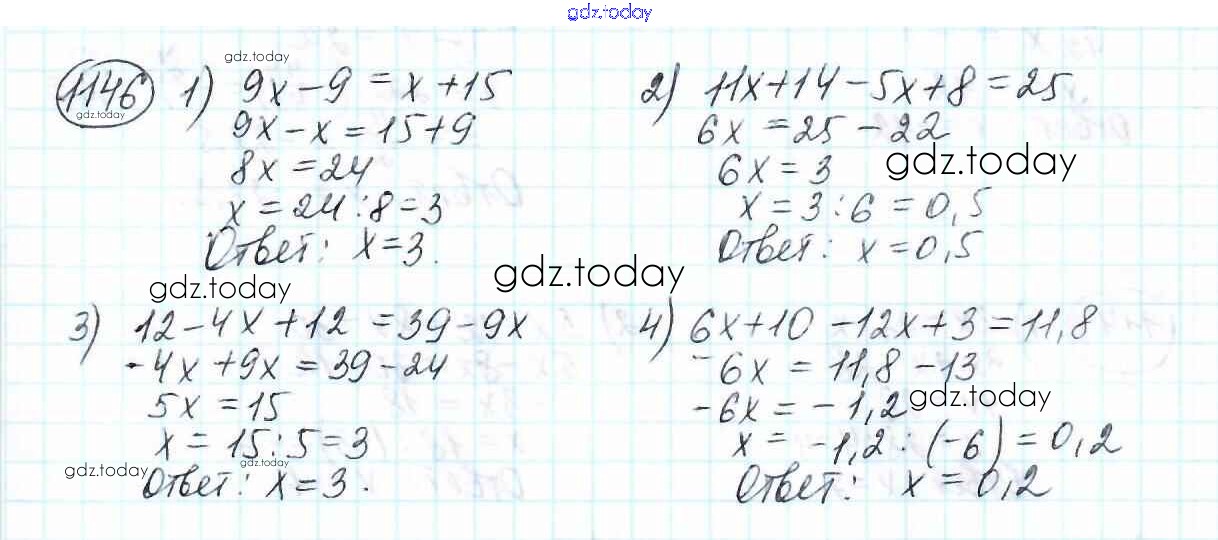 gdz.today
gdz.today
1146 1) 9x-9=x+15
gdz.today
9x-x=15+9
8x=24
x=24:8=3
Ответ: x=3.
2) 11x+14-5x+8=25
6x=25-22
gdz.today
6x=3
x=3:6=0,5
Ответ: x=0,5
gdz.today
gdz.today
3) 12-4x+12=39-9x
-4x+9x=39-24
5x=15
x=15:5=3
gdz.today
gdz.today
Ответ: x=3.
4) 6x+10-12x+3=11,8
-6x=11,8-13
gdz.today
-6x=-1,2
x=-1,2:(-6)=0,2
Ответ: x=0,2